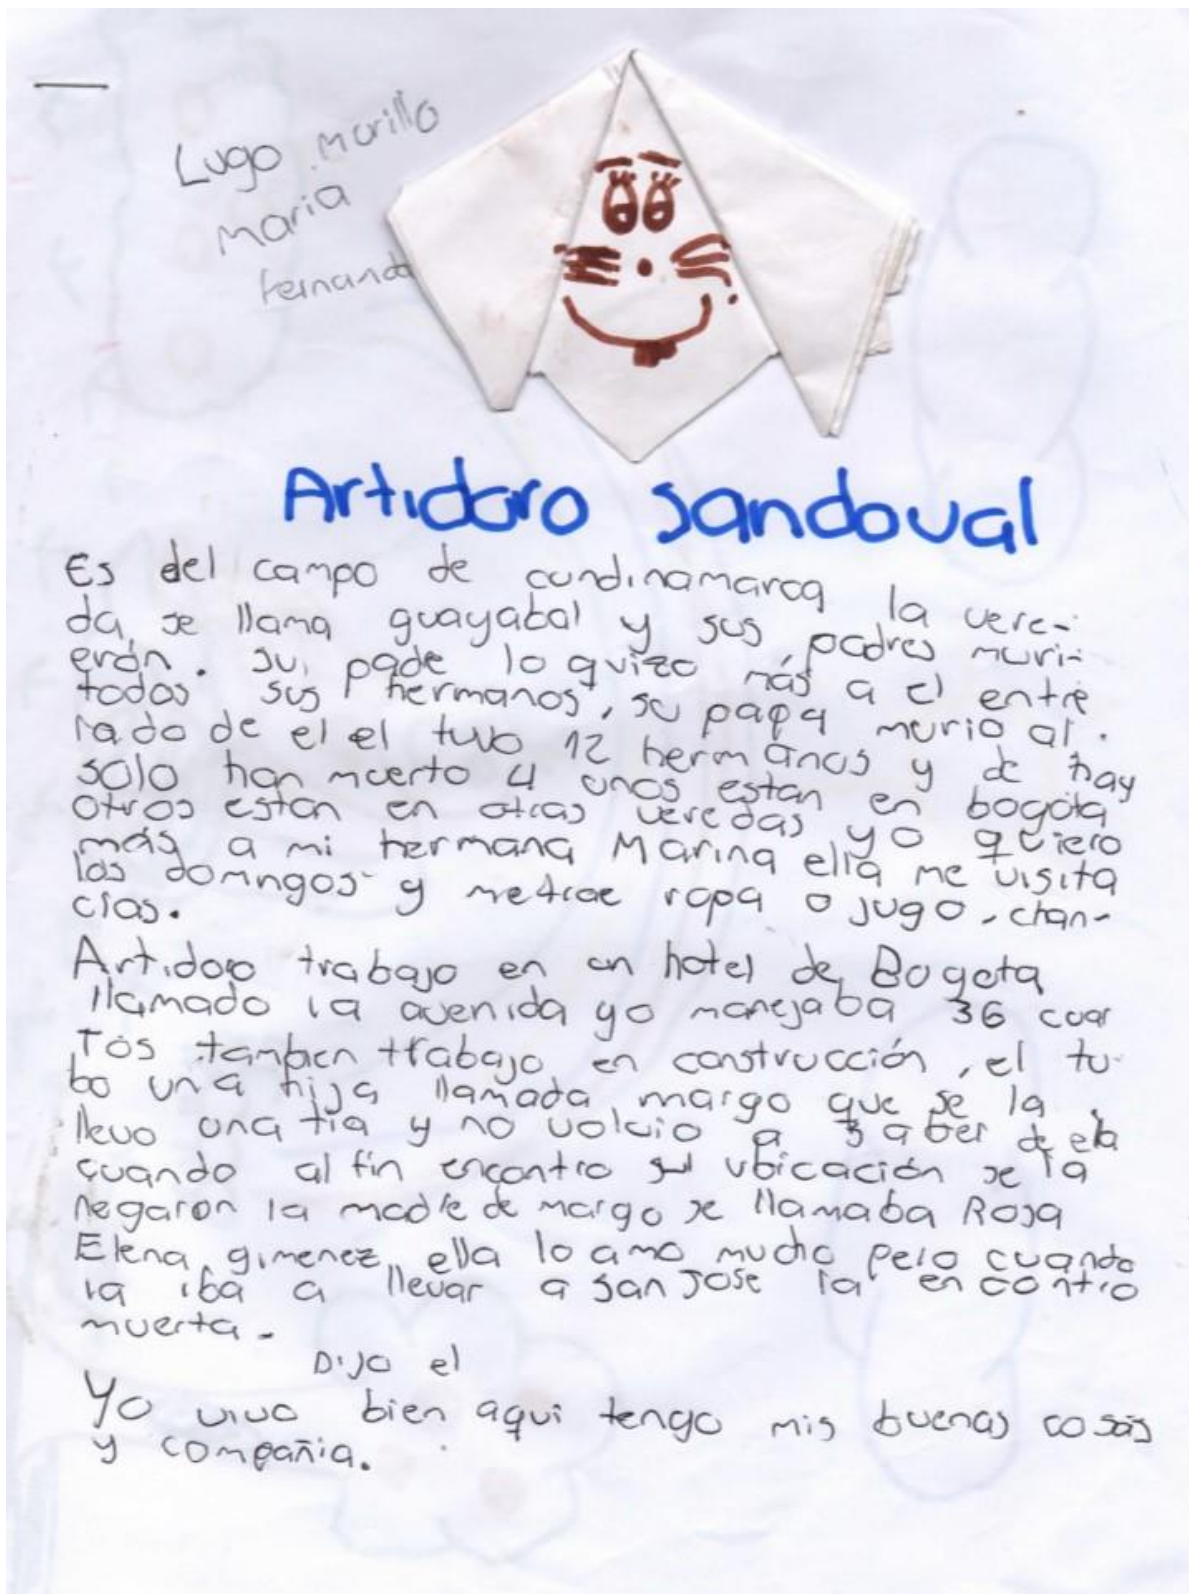 Lugo murillo
maria
fernanda
Artidoro Sandoval
Es del campo de cundinamarca la vere-
da, se llama guayabal y sus padres muri-
erón. su pade lo quizo más a el entre
todos sus hermanos, su papa murio al.
rado de el el tuvo 12 hermanos y de hay
solo han muerto 4 unos estan en bogota
otros estan en otras veredas yo quiero
más a mi hermana Marina ella me visita
los domngos y metrae ropa o jugo, chan-
clas.
Artidoro trabajo en un hotel de Bogota
llamado la avenida yo manejaba 36 cuar
Tos tambien trabajo en construcción, el tu-
bo una hija llamada margo que se la
llevo una tia y no volvio a saber de ella
cuando al fin encontro su ubicación se la
negaron la madre de margo se llamaba Rosa
Elena gimenez, ella lo amo mucho pero cuando
la iba a llevar a san Jose la encontro
muerta.
Dijo el
Yo vivo bien aqui tengo mis buenas cosas
y compañia.